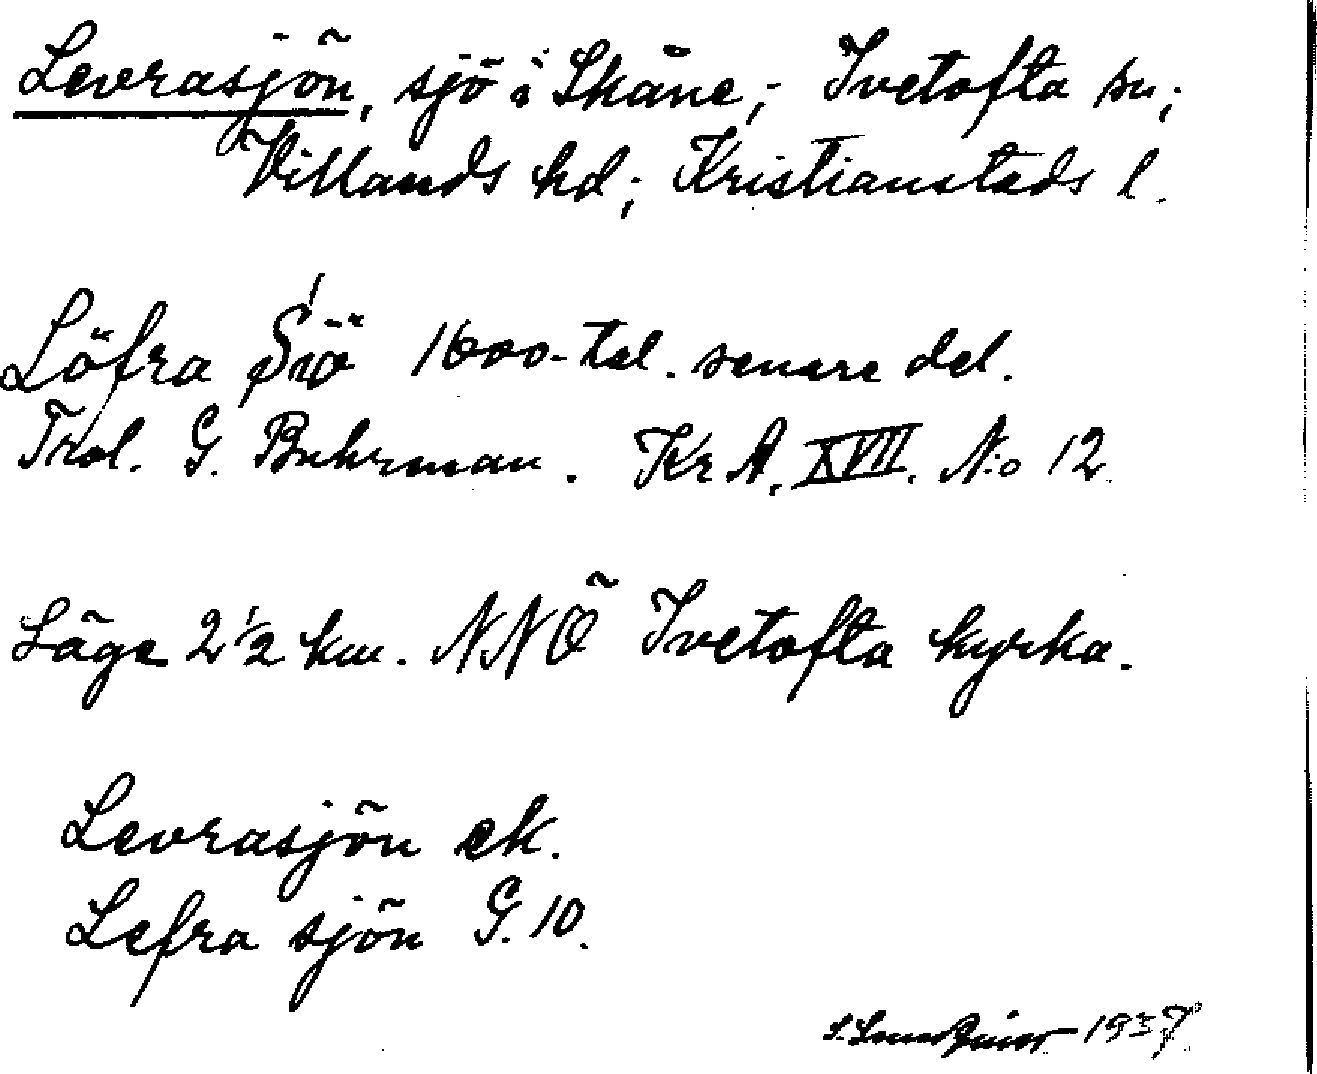 Levrasjön, sjö i Skåne; Ivetofta sn;
Villands hd; Kristianstads l.
Löfra Siö 1600-tal. senare del.
Trol. G. Buhrman. KrA. XVII. N:o 12.
Läge 2 1/2 km. NNÖ Ivetofta kyrka.
Levrasjön ek.
Lefra sjön G. 10.
1937